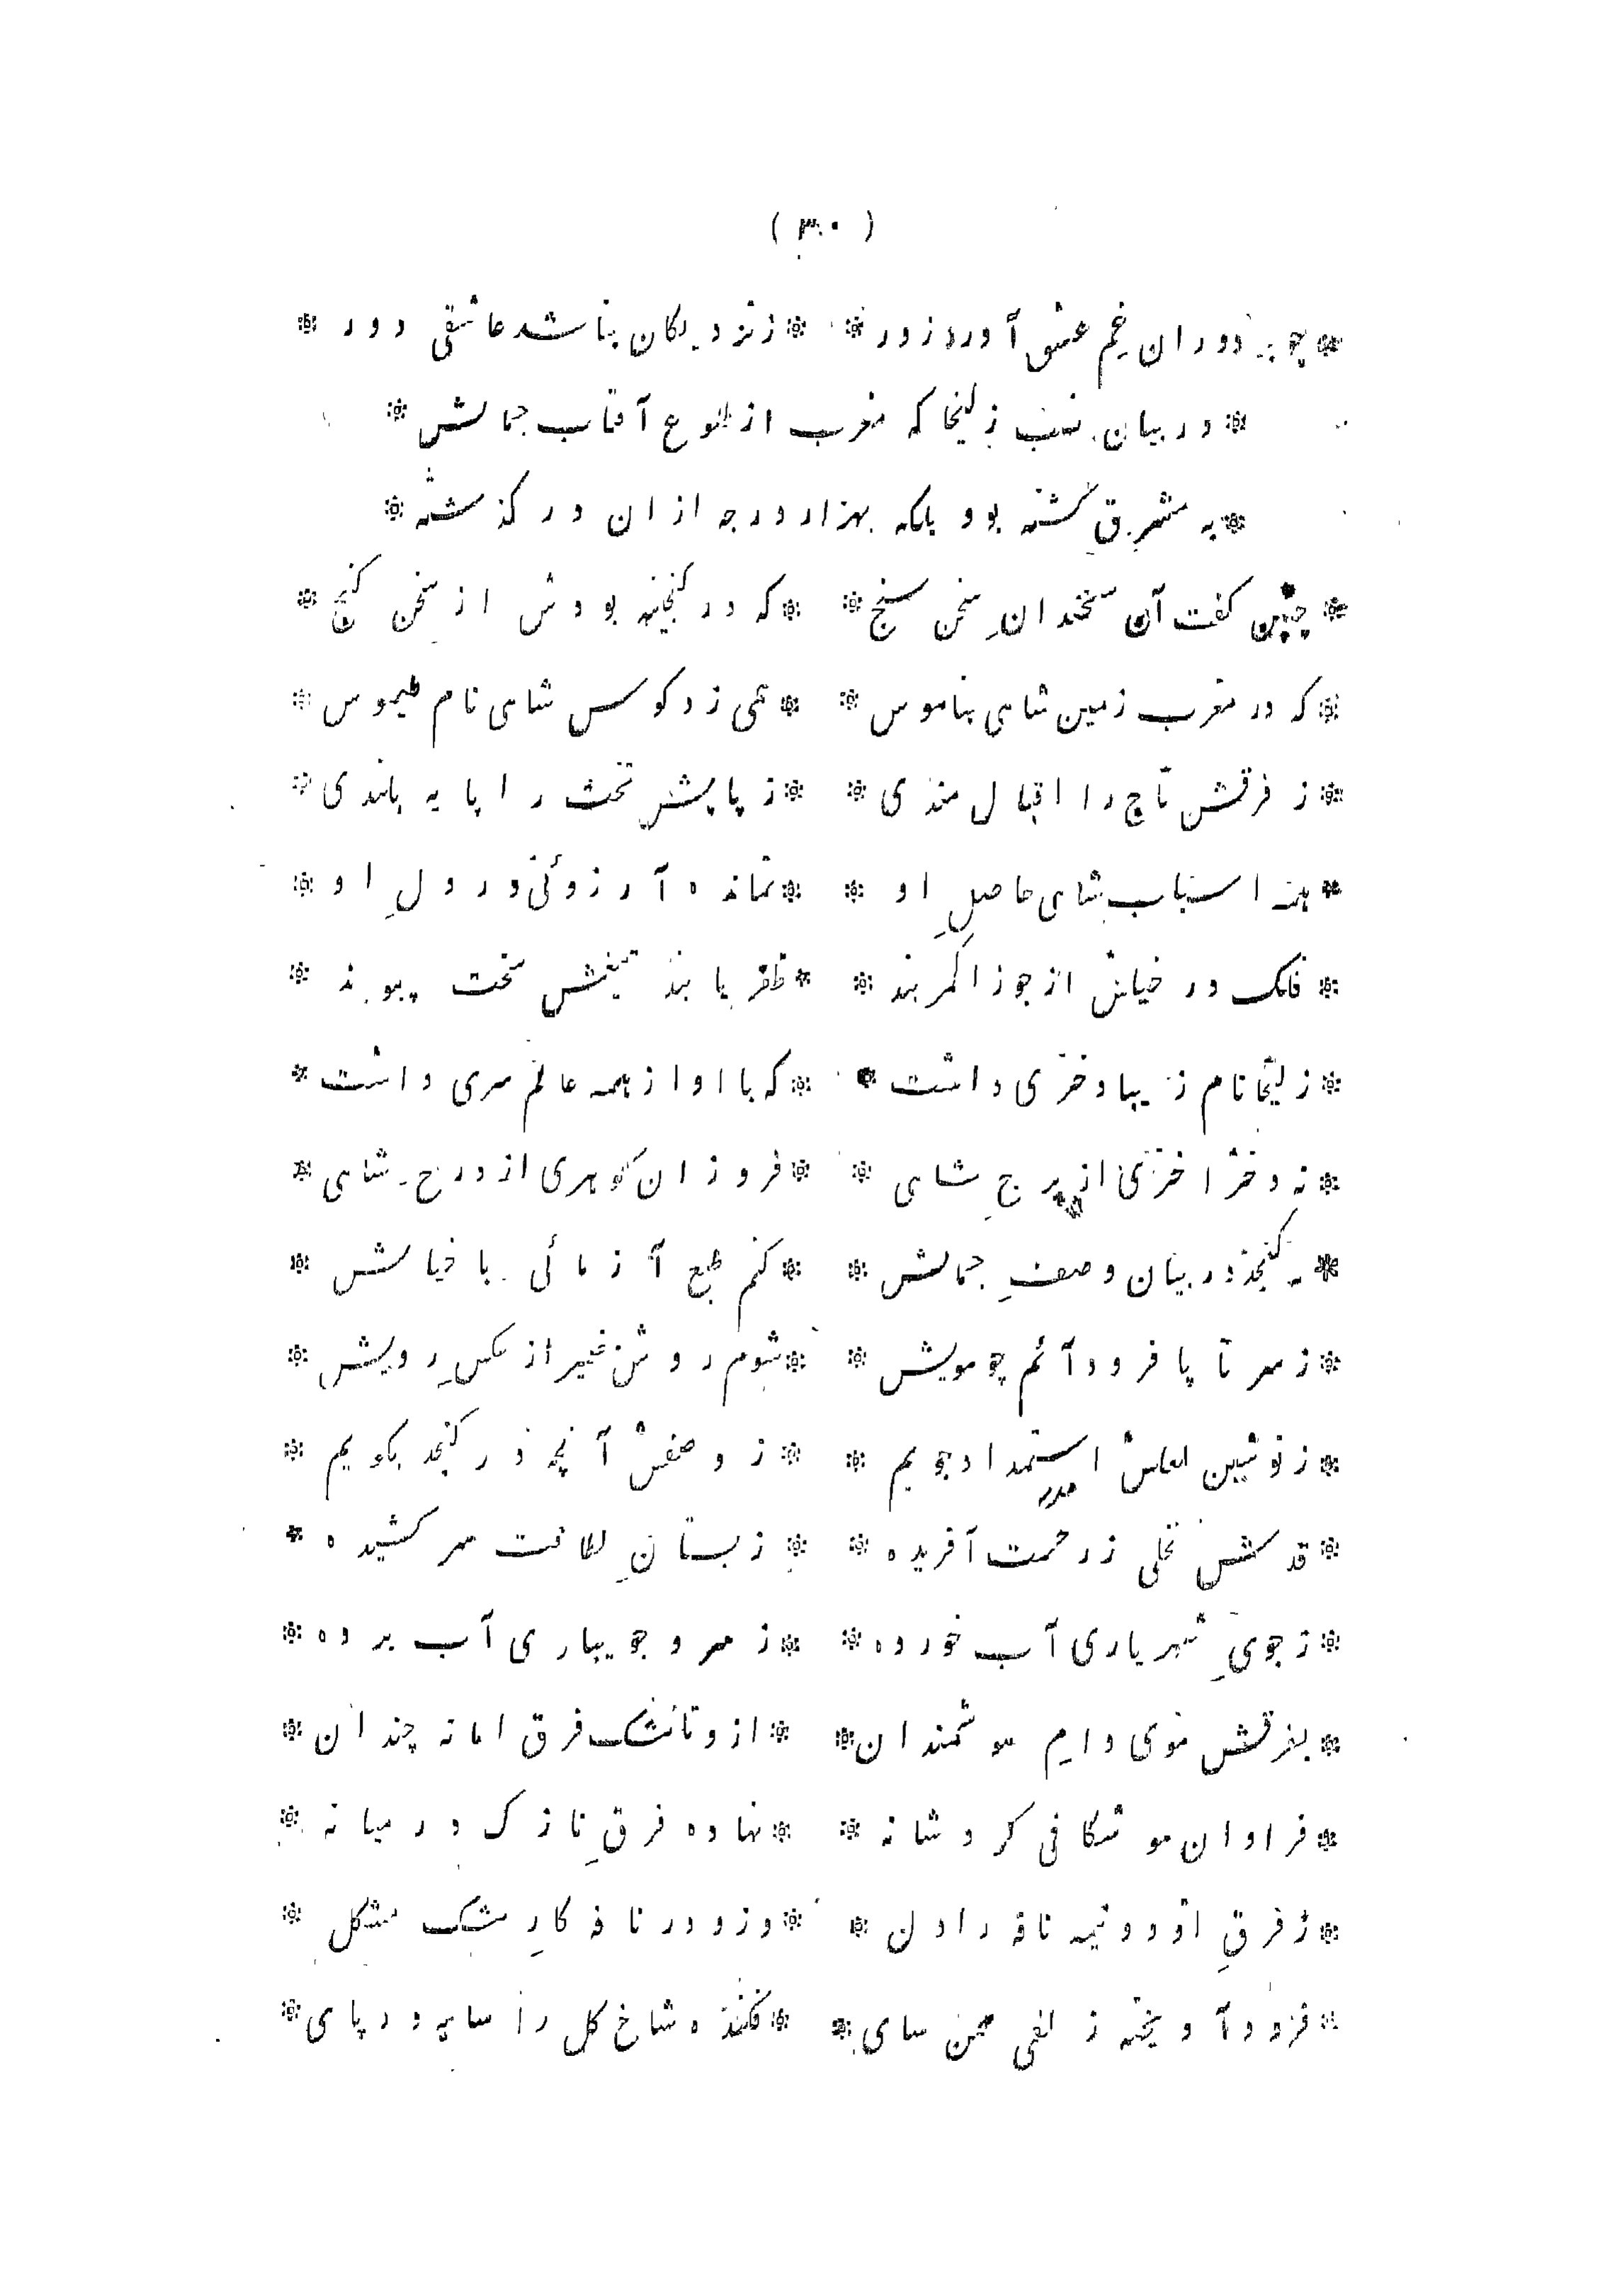 ( ۳۰ )
* چو بر دوران غم عشق آورد زور * * ز نزدیکان نباشد عاشقی دور *
* در بیان نسب زلیخا که مغرب از طلوع آفتاب جمالش *
* به مشرق گشته بود بلکه بهزار درجه ازان در کذشته *
* چنین کفت آن سخندانِ سخن سنج * * که در کنجینه بودش از سخن کنج *
* که در مغرب زمین شاهی بناموس * * همی زد کوس شاهی نام طیموس *
* ز فرقش تاج را اقبال مندی * * ز پایش تخت را پایه بلندی *
* همه اسباب شاهی حاصلِ او * * نمانده آرزوئی در دلِ او *
* فلک در خیلش از جوزا کمر بند * * ظفر با بند تیغش سخت پیوند *
* زلیخا نام زیبا دختری داشت * * که با او از همه عالم سری داشت *
* نه دختر اختری از برجِ شاهی * * فروزان کوهری از درجِ شاهی *
* نه کنجد در بیان وصفِ جمالش * * کنم طبع آزمائی با خیالش *
* ز سر تا پا فرود آئم چو مویش * * شوم روشن ضمیر از عکسِ رویش *
* ز نوشین لعلش استمداد جویم * * ز وصفش آنچه در کنجد بکویم *
مدد
* قدش نخلی ز رحمت آفریده * * ز بستانِ لطافت سر کشیده *
* ز جویِ شهریاری آب خورده * * ز سرو جویباری آب برده *
* بفرقش موی دام هوشمندان * * ازو تا مشک فرق اما نه چندان *
* فراوان مو شکافی کرد شانه * * نهاده فرقِ نازک در میانه *
* ز فرقِ او دو نیمه نافه را دل * * وزو در نافه کارِ مشک مشکل *
* فرود آویخته زلفی سمن سای * * فکنده شاخ کل را سایه در پای *